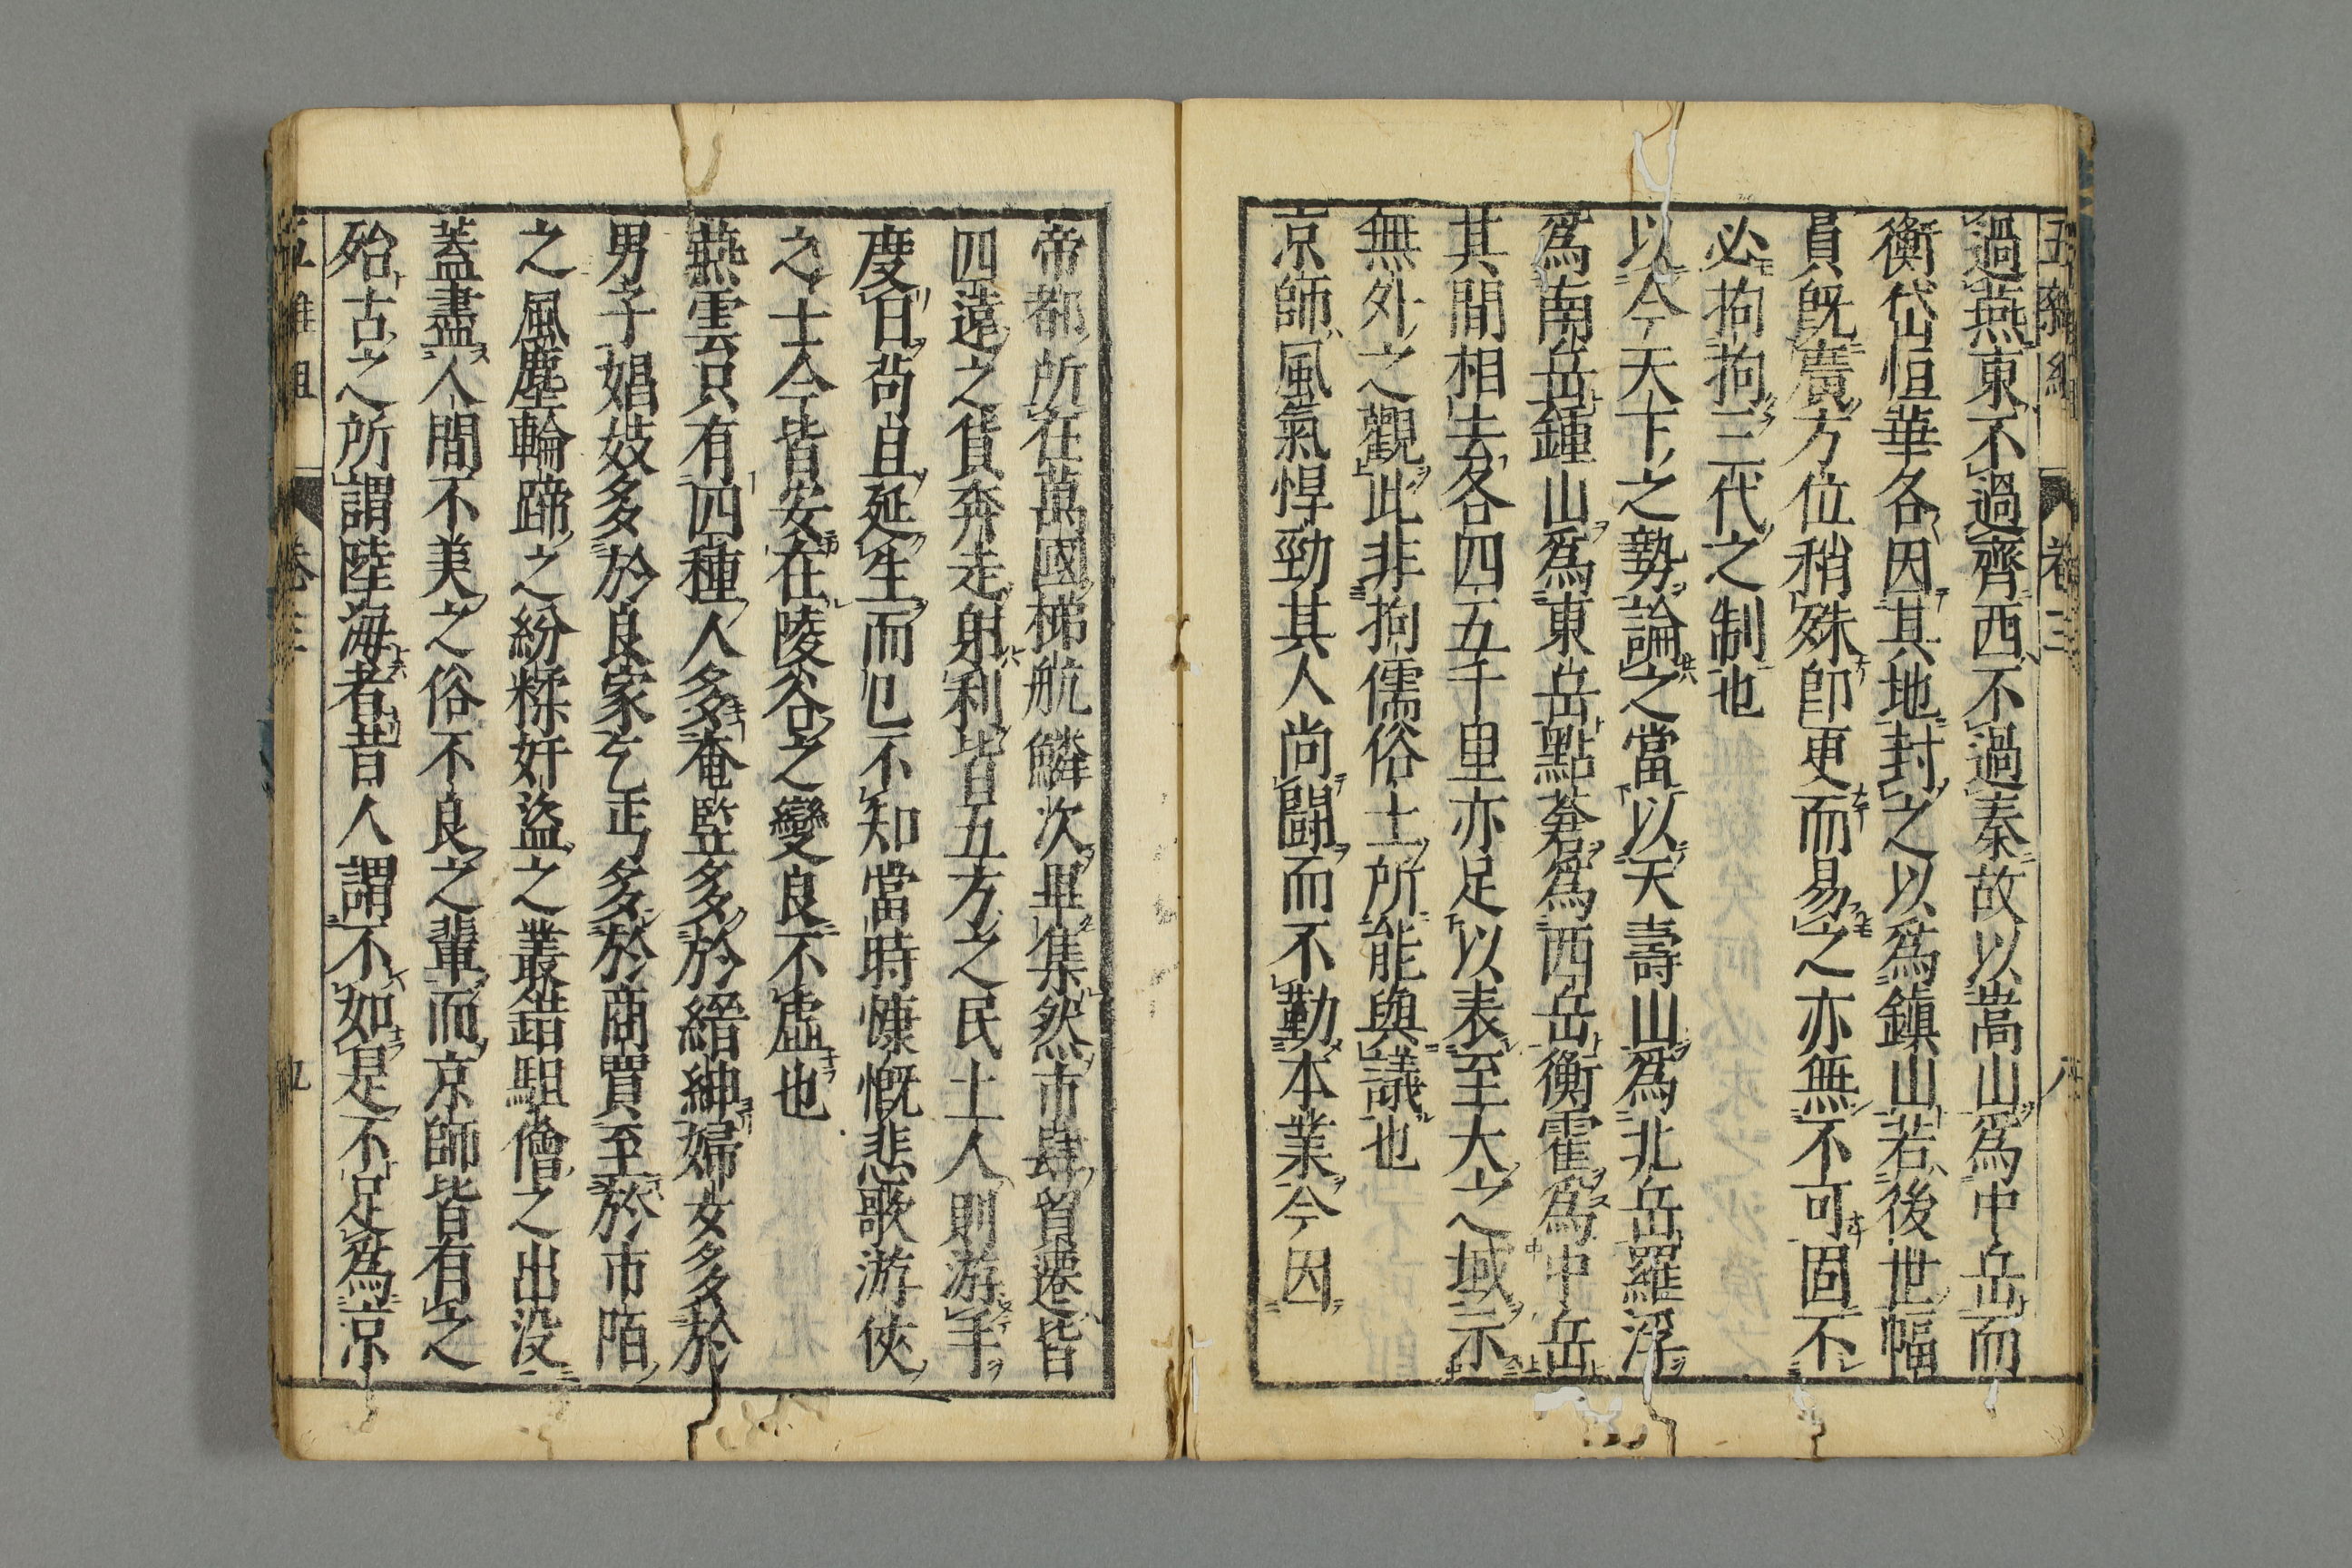 過燕東不過齊西不過秦故以嵩山爲中岳而
衡岱恒華各因其地封之以爲鎮山若後世幅
員旣廣方位稍殊卽更而易之亦無不可固不
必拘拘三代之制也
以今天下之勢論之當以天壽山爲北岳羅浮
爲南岳鍾山爲東岳點蒼爲西岳衡霍爲中岳
其間相去各四五千里亦足以表至大之域示
無外之觀此非拘儒俗士所能與議也
京師風氣悍勁其人尚鬪而不勤本業今因
帝都所在萬國梯航鱗次畢集然市肆貿遷皆
四遠之貨奔走射利皆五方之民土人則游手
度日苟且延生而已不知當時慷慨悲歌游俠
之士今皆安在陵谷之變良不虛也
燕雲只有四種人多奄豎多於縉紳婦女多於
男子娼妓多於良家乞丐多於商賈至於市陌
之風塵輪蹄之紛糅奸盜之叢錯駔儈之出没
蓋盡人間不美之俗不良之輩而京師皆有之
殆古之所謂陸海者昔人謂不如是不足爲京
五雜組 卷三 九